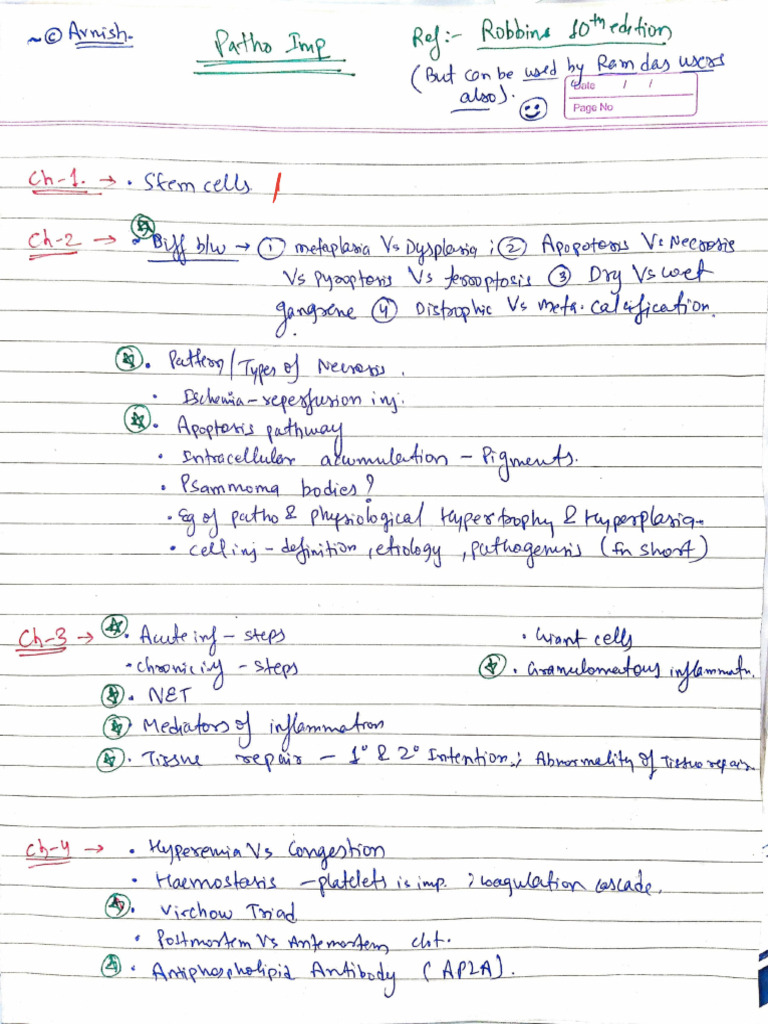 ~ © Arnish.
Patho Imp
Ref:- Robbins 10th edition
(But can be used by Ramdas users
also). 
Date / /
Page No
Ch-1. → • Stem cells
Ch-2 → • Diff b/w → ① metaplasia Vs Dysplasia ; ② Apopotosis Vs Necrosis
Vs Pyroptosis Vs ferroptosis ③ Dry Vs wet
gangrene ④ Distrophic Vs meta. calcification.
• Pattern/Types of Necrosis.
• Ischemia-reperfusion inj.
• Apoptosis pathway
• Intracellular accumulation - Pigments.
• Psammoma bodies?
• Eg of patho & physiological Hypertrophy & Hyperplasia.
• cell inj - definition, etiology, pathogenesis (In short)
Ch-3 → • Acute inf - steps
• Giant cells
• chronic inf - steps
• Granulomatous inflammatn.
• NET
• Mediators of inflammation
• Tissue repair - 1° & 2° Intention.; Abnormality of tissue repair
Ch-4 → • Hyperemia Vs Congestion
• Haemostasis - platelets is imp. ; coagulation cascade.
• Virchow Triad
• Postmortem Vs Antemortem clot.
• Antiphospholipid Antibody (APLA).